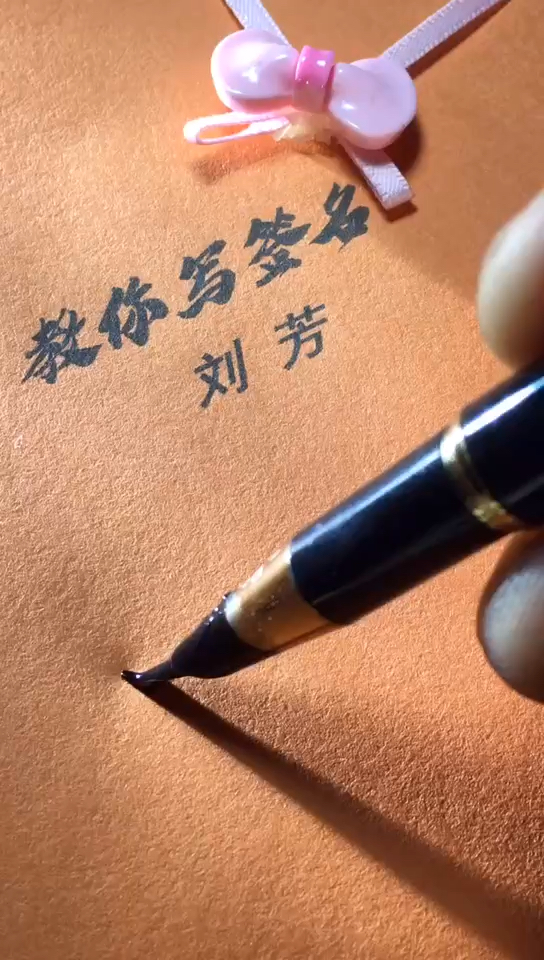 教你写签名
刘芳